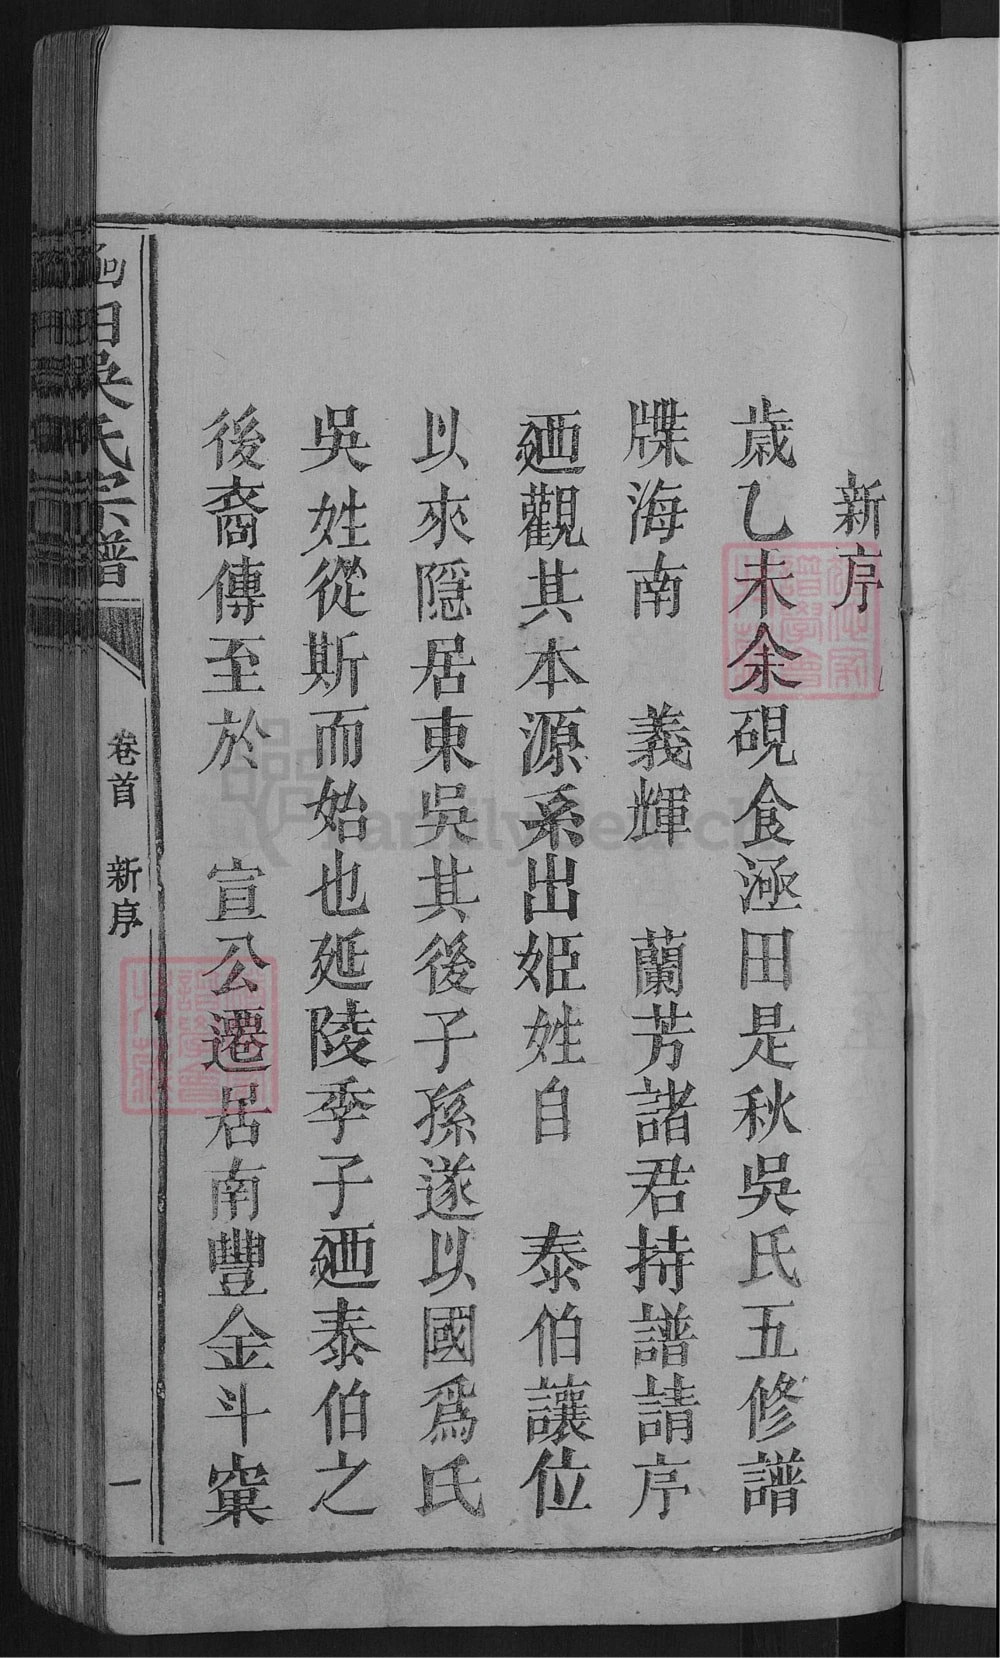 新序
歲乙未余硯食涵田是秋吳氏五修譜
牒海南　義輝　蘭芳諸君持譜請序
廼觀其本源系出姬姓自　泰伯讓位
以來隱居東吳其後子孫遂以國爲氏
吳姓從斯而始也延陵季子廼泰伯之
後裔傳至於　宣公遷居南豐金斗窠
田吳氏宗譜
卷首　新序
一
FamilySearch